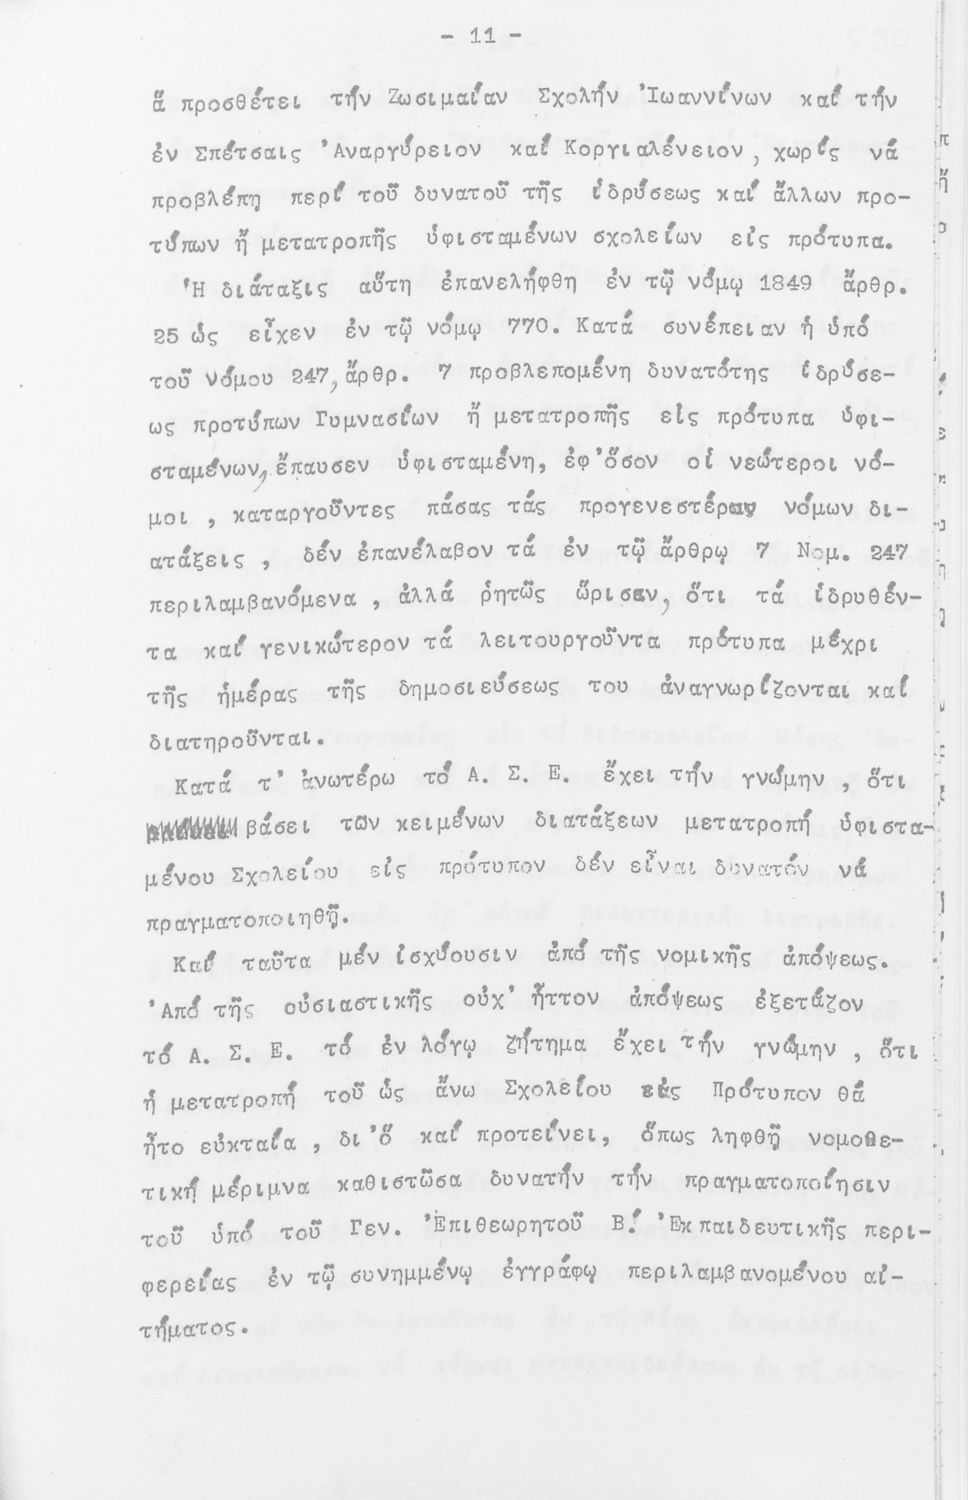 - 11 -
ἅ προσθέτει τήν Ζωσιμαίαν Σχολήν Ἰωαννίνων καί τήν
ἐν Σπέτσαις Ἀναργύρειον καί Κοργιαλένειον, χωρίς νά
προβλέπῃ περί τοῦ δυνατοῦ τῆς ἱδρύσεως καί ἄλλων προ-
τύπων ἤ μετατροπῆς ὑφισταμένων σχολείων εἰς πρότυπα.
Ἡ διάταξις αὕτη ἐπανελήφθη ἐν τῷ νόμῳ 1849 ἄρθρ.
25 ὡς εἶχεν ἐν τῷ νόμῳ 770. Κατά συνέπειαν ἡ ὑπό
τοῦ Νόμου 247, ἄρθρ. 7 προβλεπομένη δυνατότης ἱδρύσε-
ως προτύπων Γυμνασίων ἤ μετατροπῆς εἰς πρότυπα ὑφι-
σταμένων, ἔπαυσεν ὑφισταμένη, ἐφ'ὅσον οἱ νεώτεροι νό-
μοι , καταργοῦντες πάσας τάς προγενεστέραν νόμων δι-
ατάξεις , δέν ἐπανέλαβον τά ἐν τῷ ἄρθρῳ 7 Νομ. 247
περιλαμβανόμενα , ἀλλά ῥητῶς ὥρισαν, ὅτι τά ἱδρυθέν-
τα καί γενικώτερον τά λειτουργοῦντα πρότυπα μέχρι
τῆς ἡμέρας τῆς δημοσιεύσεως του ἀναγνωρίζονται καί
διατηροῦνται.
Κατά τ' ἀνωτέρω τό Α. Σ. Ε. ἔχει τήν γνώμην , ὅτι
βάσει τῶν κειμένων διατάξεων μετατροπή ὑφιστα-
μένου Σχολείου εἰς πρότυπον δέν εἶναι δυνατόν νά
πραγματοποιηθῇ.
Καί ταῦτα μέν ἰσχύουσιν ἀπό τῆς νομικῆς ἀπόψεως.
Ἀπό τῆς οὐσιαστικῆς οὐχ' ἧττον ἀπόψεως ἐξετάζον
τό Α. Σ. Ε. τό ἐν λόγῳ ζήτημα ἔχει τήν γνώμην , ὅτι
ἡ μετατροπή τοῦ ὡς ἄνω Σχολείου εἰς Πρότυπον θά
ἦτο εὐκταία , δι'ὅ καί προτείνει, ὅπως ληφθῇ νομοθε-
τική μέριμνα καθιστῶσα δυνατήν τήν πραγματοποίησιν
τοῦ ὑπό τοῦ Γεν. Ἐπιθεωρητοῦ Β! Ἐκπαιδευτικῆς περι-
φερείας ἐν τῷ συνημμένῳ ἐγγράφῳ περιλαμβανομένου αἰ-
τήματος.